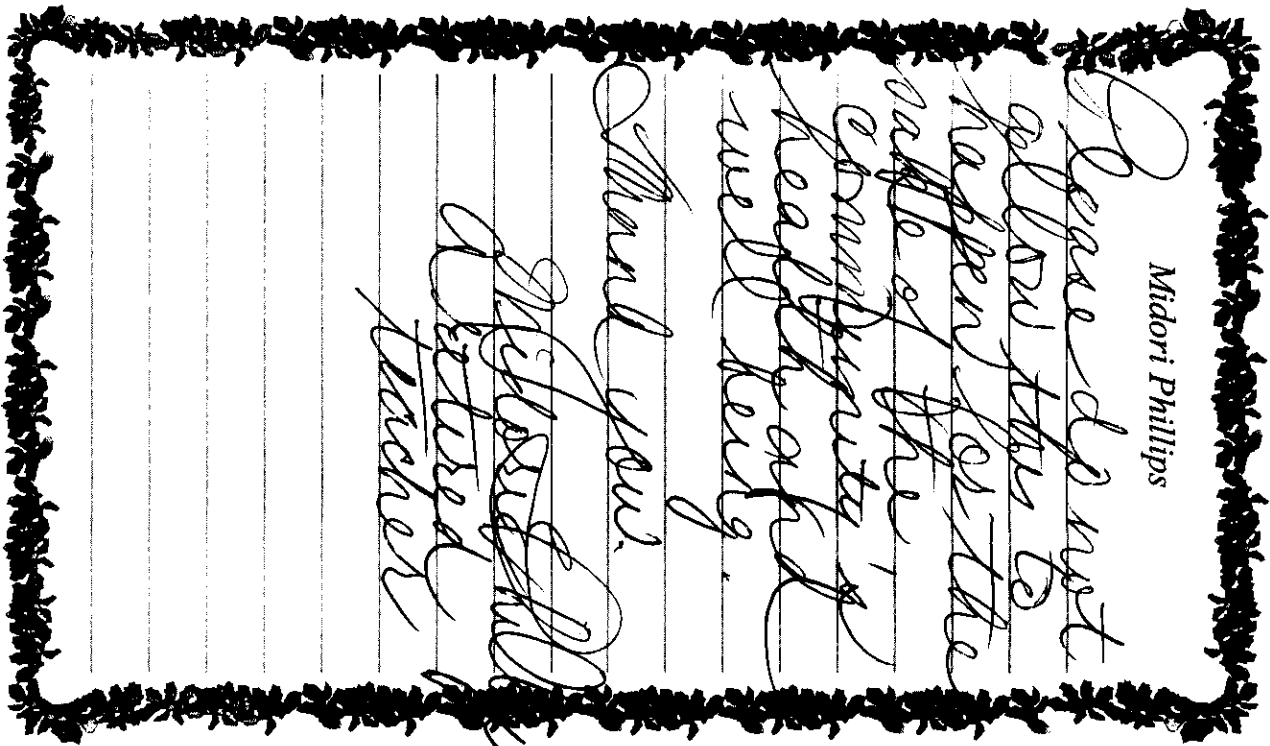 Midori Phillips
Please do not
allow this to
happen for the
sake of the
community's
health and
well being.
Thank you.
Midori Phillips
a retired
teacher